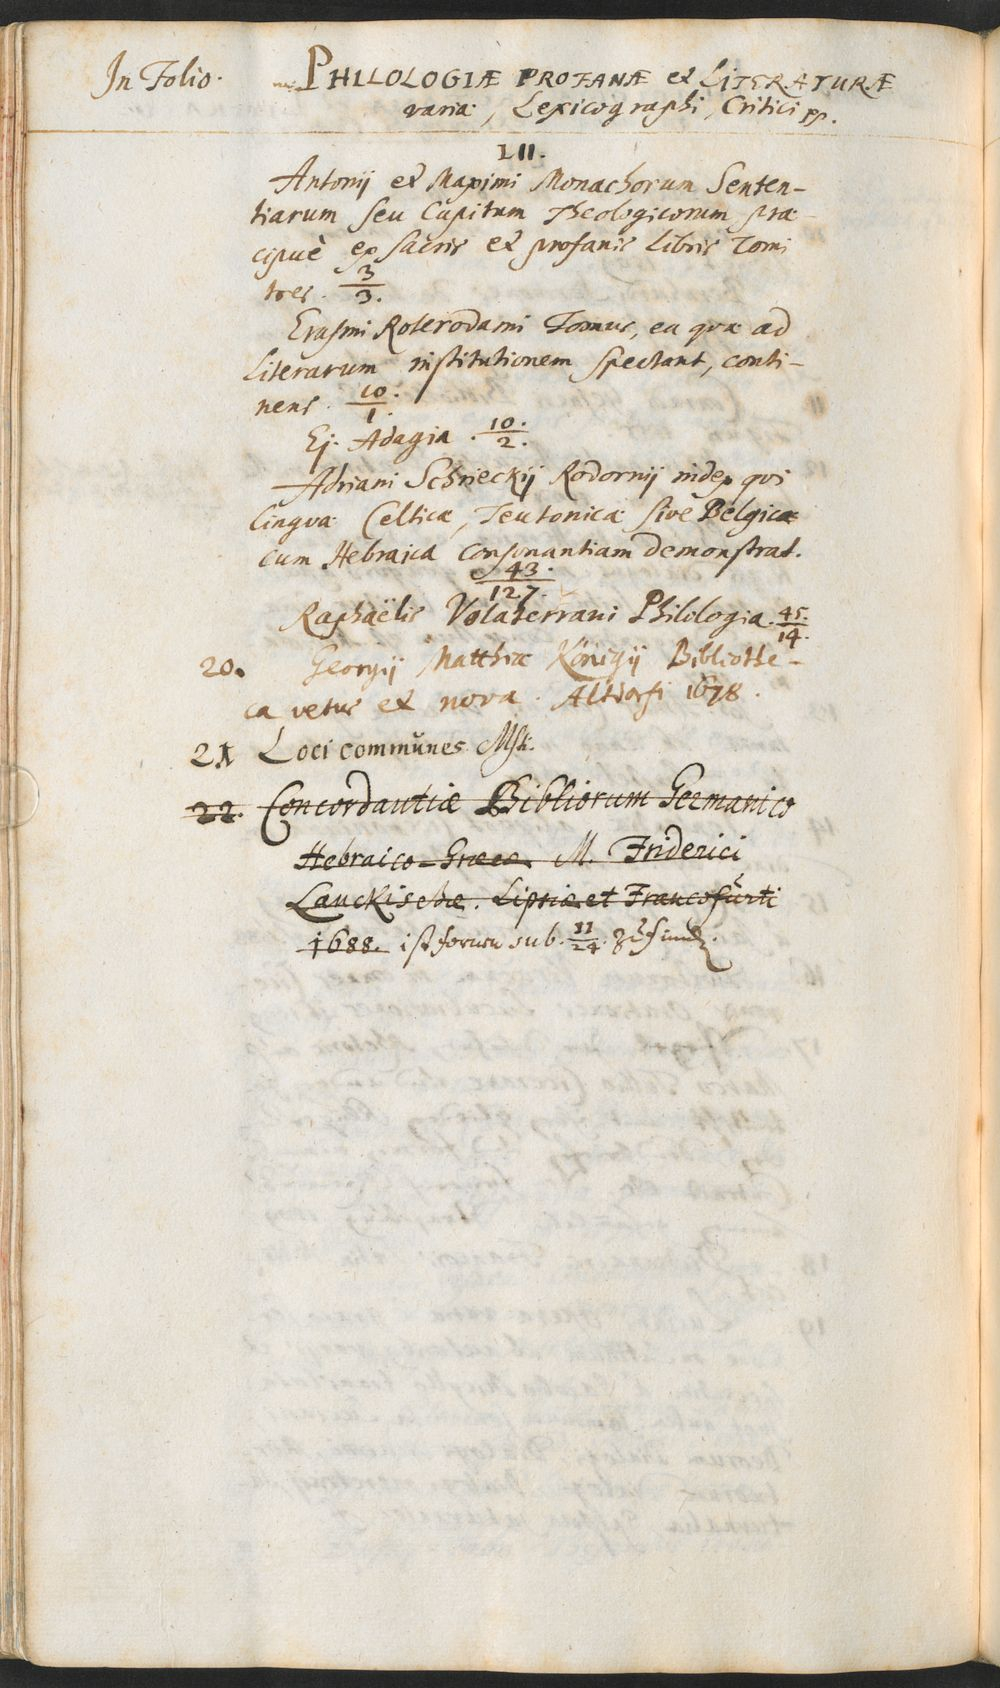 In Folio. PHILOLOGIÆ PROFANÆ et LITERATURÆ
varia, Lexicographi, Critici pp.
LII.
Antonij et Maximi Monachorum Senten-
tiarum seu Capitum Theologicorum præ-
cipuè ex sacris et profanis Libris Tomi
tres. 3/3.
Erasmi Roterodami Tomus, ea quæ ad
Literarum institutionem spectant, conti-
nens. 10./1.
Ej. Adagia. 10./2.
Adriani Schrieckij Rodornij index qvi
Lingvæ Celticæ, Teutonicæ sive Belgicæ
cum Hebraica consonantiam demonstrat.
43./127.
Raphaëlis Volaterrani Philologia. 45./14.
20. Georgij Matthiæ Königij Bibliothe-
ca vetus et nova. Altdorfi 1678.
21 Loci commŭnes Mst.
22. Concordantiæ Bibliorum Germanico
Hebraico-Græcæ. M. Friderici
Lanckischæ. Lipsiæ et Francofŭrti
1688. ist forn sub. 11/24.